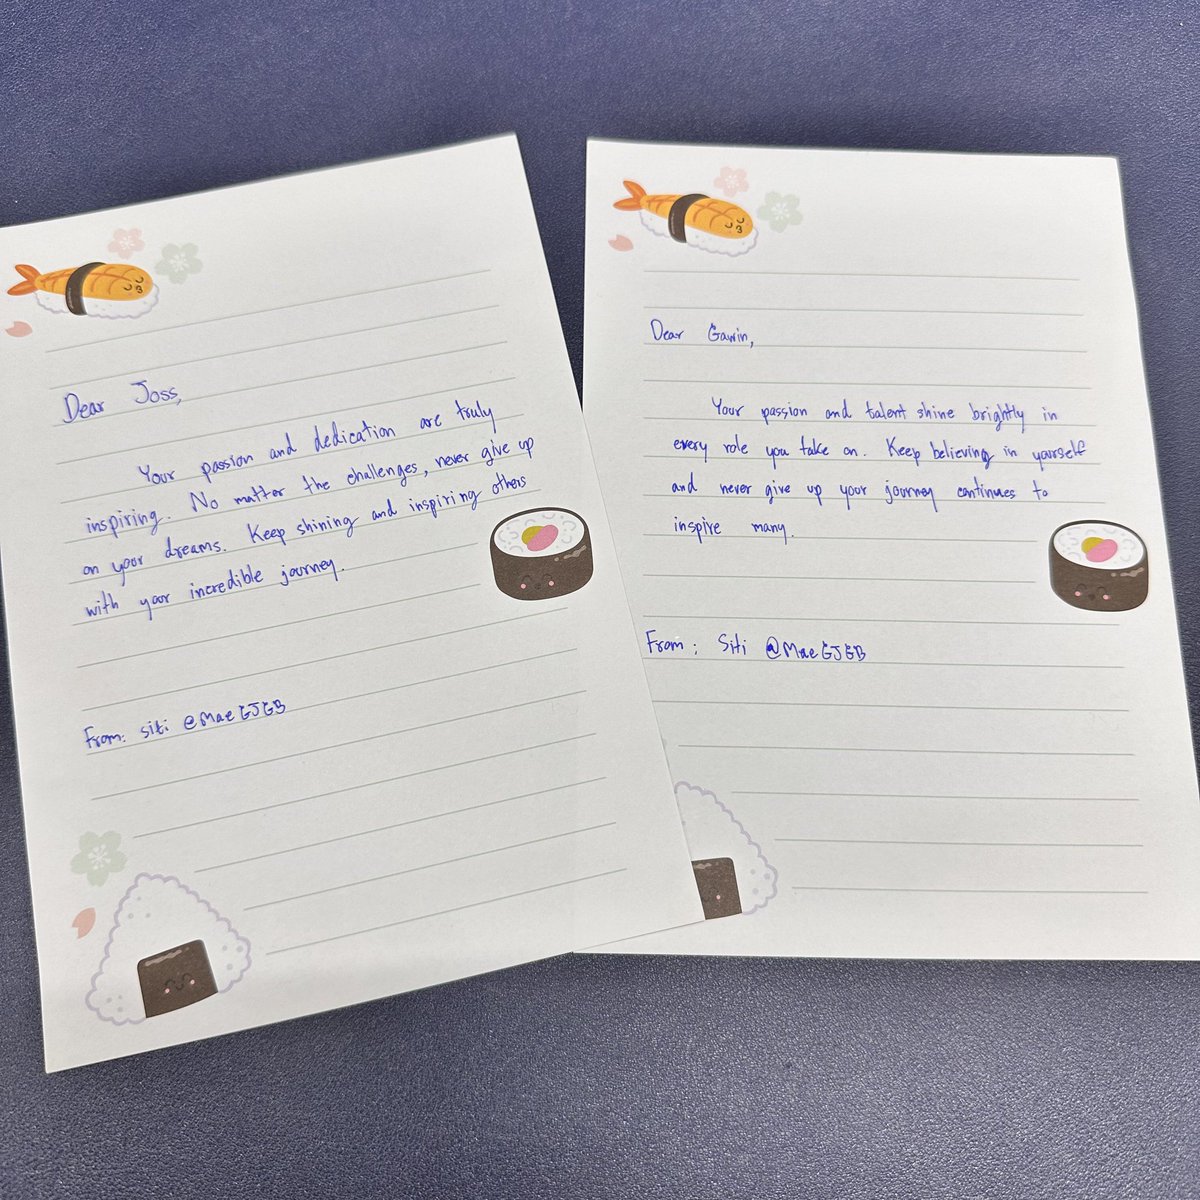 Dear Joss,
Your passion and dedication are truly
inspiring. No matter the challenges, never give up
on your dreams. Keep shining and inspiring others
with your incredible journey.
From: siti @MaeGJGB
Dear Gawin,
Your passion and talent shine brightly in
every role you take on. Keep believing in yourself
and never give up your journey continues to
inspire many.
From: Siti @MaeGJGB